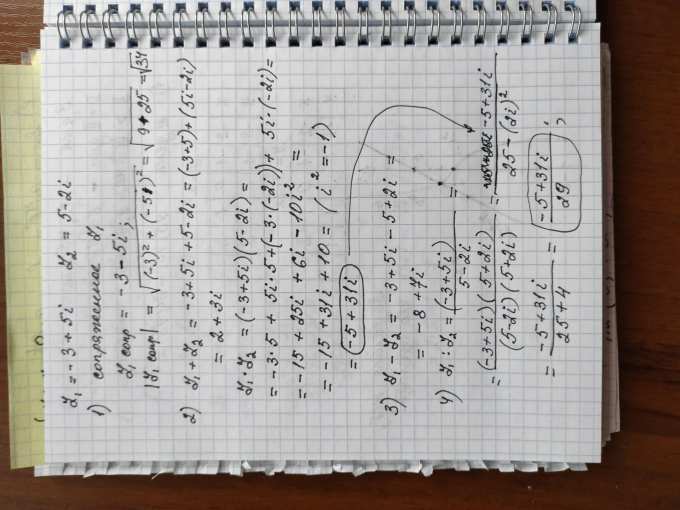 z₁ = -3+5i   z₂ = 5-2i
1) сопряженное z₁
z₁ сопр = -3-5i;
|z₁ сопр| = √((-3)²+(-5i)²) = √(9+25) = √34
2) z₁+z₂ = -3+5i+5-2i = (-3+5)+(5i-2i)
= 2+3i
z₁·z₂ = (-3+5i)(5-2i) =
= -3·5 + 5i·5+(-3·(-2i))+ 5i·(-2i) =
= -15+25i+6i-10i² =
= -15+31i+10 = (i²=-1)
= -5+31i
3) z₁-z₂ = -3+5i-5+2i =
= -8+7i
4) z₁:z₂ = (-3+5i)/(5-2i) =
= (-3+5i)(5+2i)/(5-2i)(5+2i) = -5+31i/25-(2i)²
= -5+31i/25+4 = -5+31i/29;